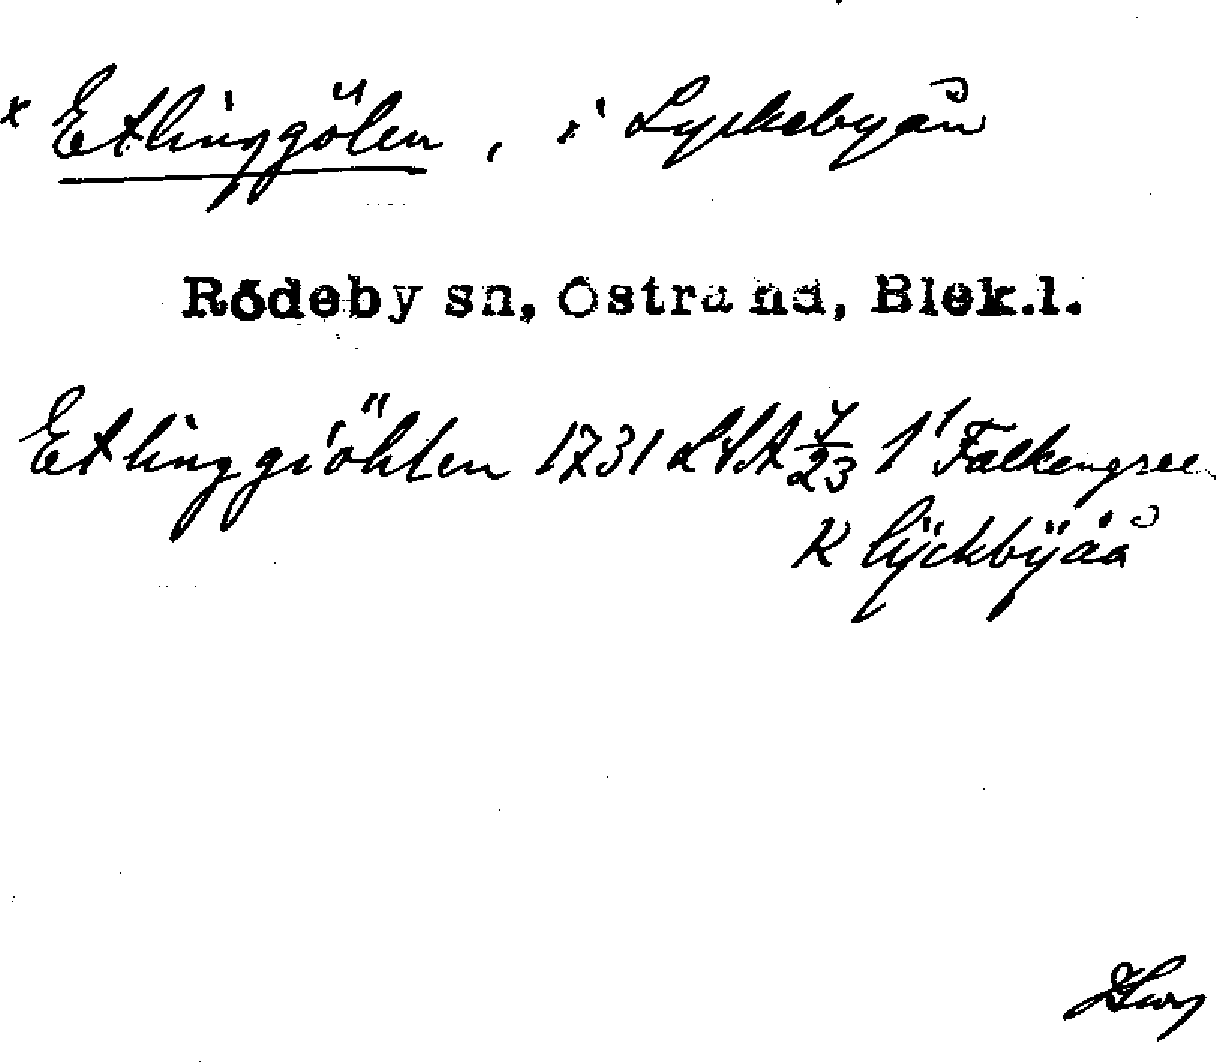 x Etlinggölen, i Lyckebyån
Rödeby sn, Östra hd, Blek.l.
Etlinggiöhlen 1731 LSA 7/23 1' Falkengree
K lÿckbÿåå